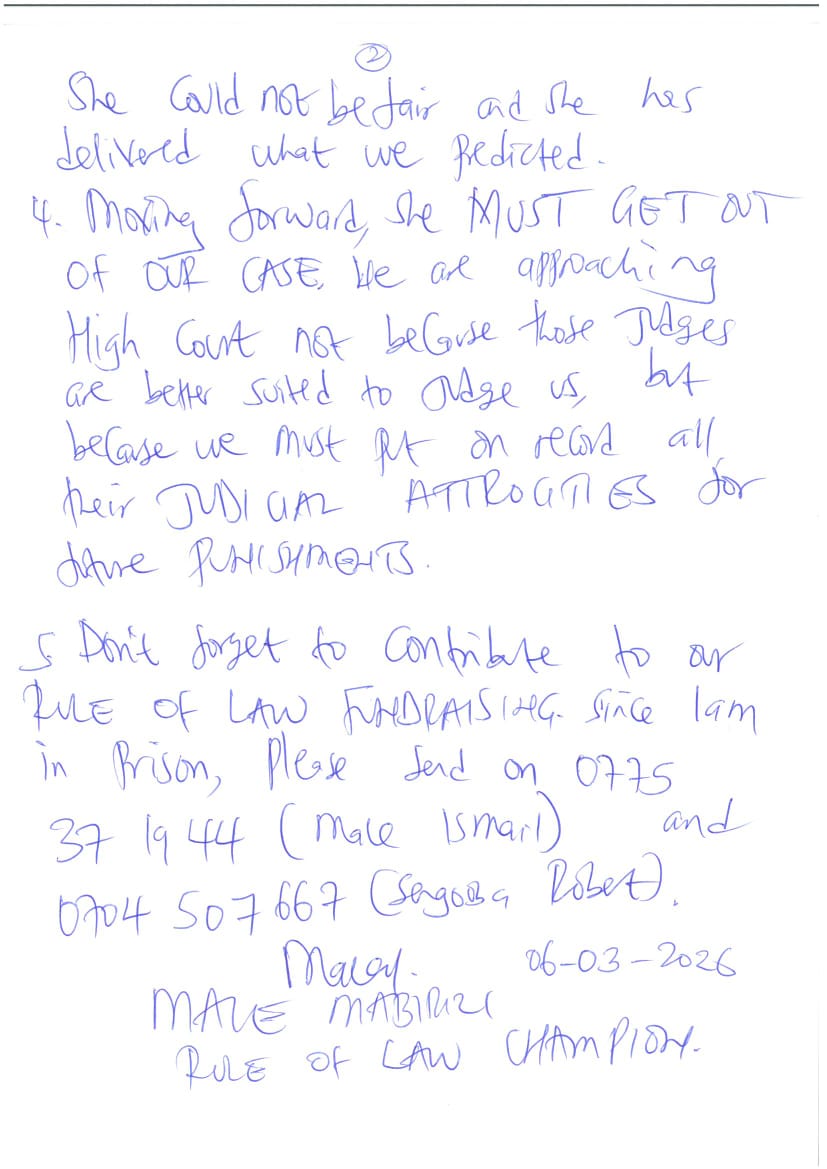 2
She Could not be fair and she has
delivered what we Predicted.
4. Moving forward, she MUST GET OUT
OF OUR CASE. We are approaching
High Court not because those Judges
are better suited to Judge us, but
because we must put on record all
their JUDICIAL ATTROCITIES for
future PUNISHMENTS.
5 Don't forget to Contribute to our
RULE OF LAW FUNDRAISING. Since I am
in Prison, Please send on 0775
37 19 44 (Male Ismail) and
0704 507 667 (Sengooba Robert).
06-03-2026
MALE MABIRIZI
RULE OF LAW CHAMPION.